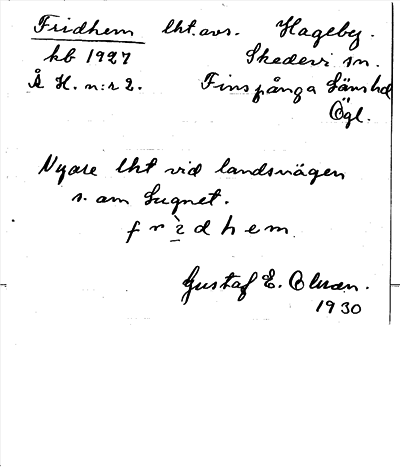 Fridhem lht. avs. Hageby.
kb 1927 Skedevi sn.
Å H. n:r 2. Finspånga läns hd
Ögl.
Nyare lht vid landsvägen
s. om Lugnet.
frìdhem
Gustaf E. Olsson.
1930